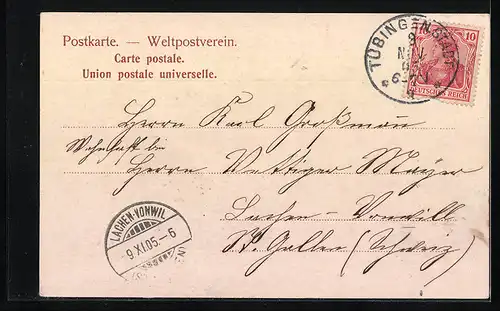 Postkarte. — Weltpostverein.
Carte postale.
Union postale universelle.
TÜBINGEN STADT
8
NOV
6-7N
10
DEUTSCHES REICH
Herrn Karl Großmann
Wohnhaft bei
Herrn Vettiger Mayer
Lachen-Vonwill
St. Gallen (Schweiz)
LACHEN-VONWIL
9.XI.05.-6